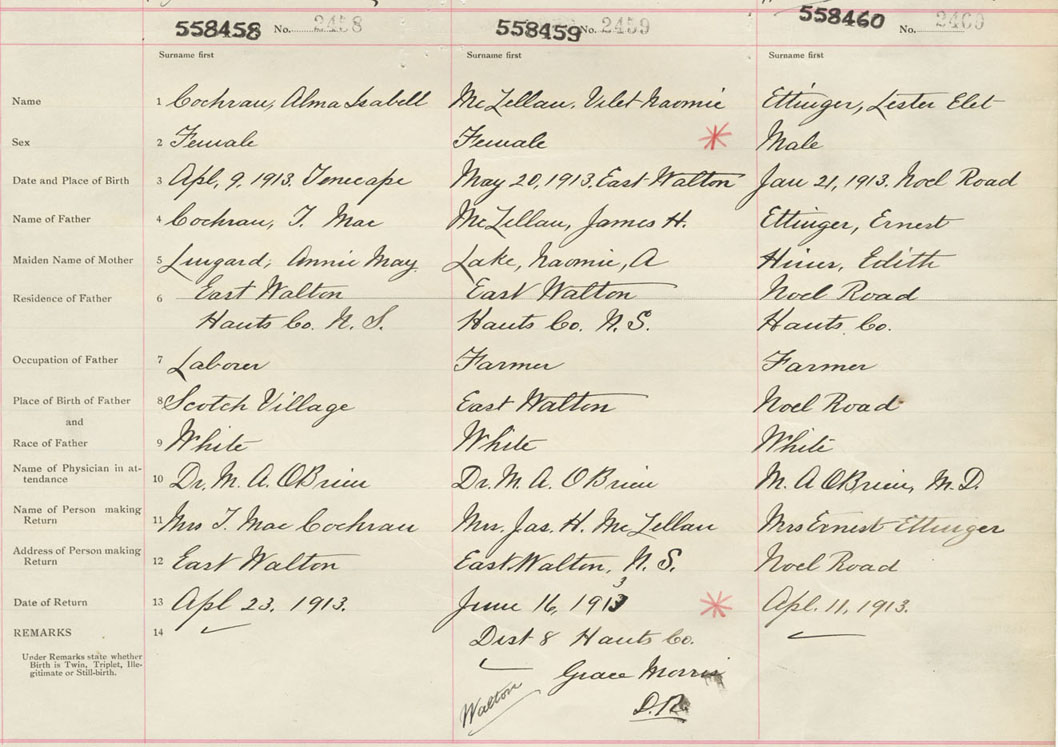 558458 No. 2458 558459 No. 2459 558460 No. 2460
Surname first Surname first Surname first
Name 1 Cochran, Alma Isabell McLellan, Vilet Naomie Ettinger, Lester Elet
Sex 2 Female Female Male
Date and Place of Birth 3 Apl, 9, 1913. Tenecape May 20, 1913. East Walton Jan 21, 1913. Noel Road
Name of Father 4 Cochran, T. Mac McLellan, James H. Ettinger, Ernest
Maiden Name of Mother 5 Lingard, Annie May Lake, Naomie, A Hines, Edith
Residence of Father 6 East Walton East Walton Noel Road
Hants Co. N. S. Hants Co. N. S. Hants Co.
Occupation of Father 7 Laborer Farmer Farmer
Place of Birth of Father 8 Scotch Village East Walton Noel Road
and
Race of Father 9 White White White
Name of Physician in at-
tendance 10 Dr. M. A. OBrien Dr. M. A. OBrien M. A OBrien, M. D.
Name of Person making
Return 11 Mrs T. Mac Cochran Mrs. Jas. H. McLellan Mrs Ernest Ettinger
Address of Person making
Return 12 East Walton East Walton, N. S. Noel Road
Date of Return 13 Apl 23. 1913. June 16, 1913 Apl. 11, 1913.
REMARKS 14 Dist 8 Hants Co.
Under Remarks state whether
Birth is Twin, Triplet, Ille-
gitimate or Still-birth.
Grace Morris
Walton D.R.